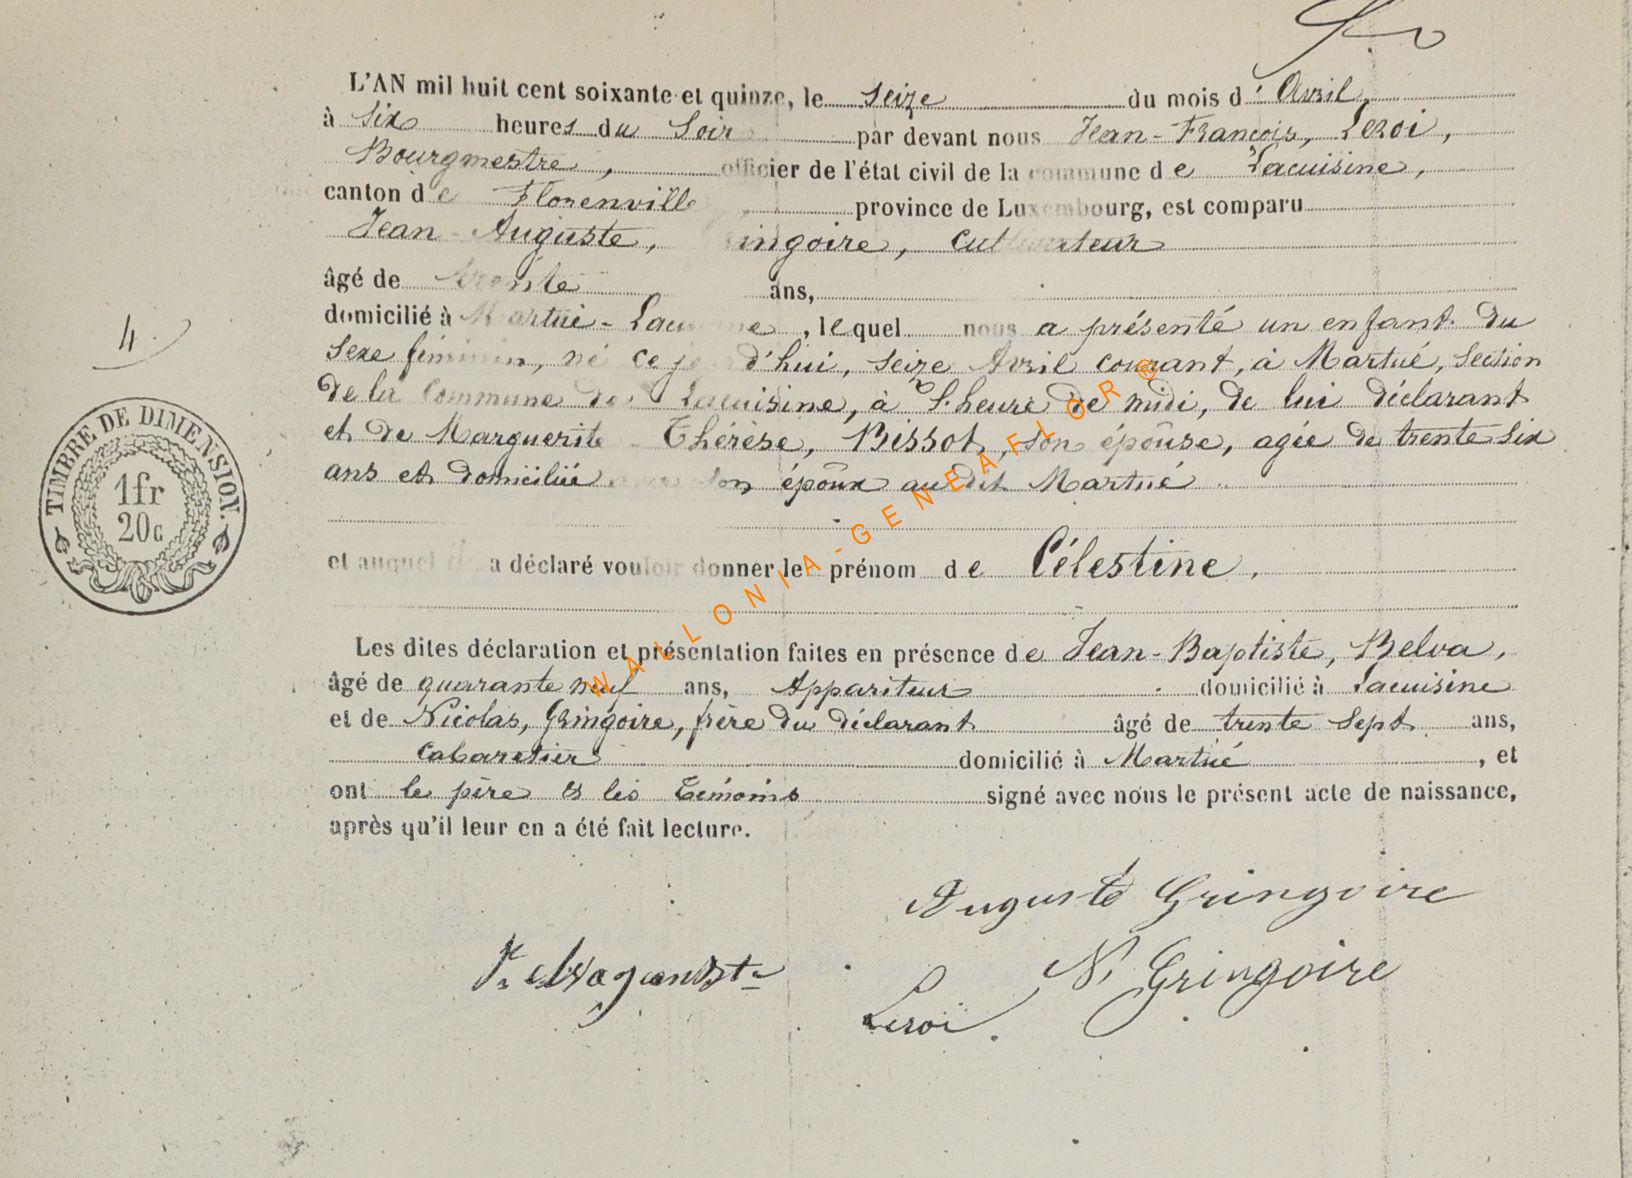 4
TIMBRE DE DIMENSION.
1fr
20c
L'AN mil huit cent soixante et quinze, le seize du mois d' Avril,
à six heures du soir par devant nous Jean-François, Leroi,
Bourgmestre, officier de l'état civil de la commune de Lacuisine,
canton de Florenville province de Luxembourg, est comparu
Jean-Auguste, Gringoire, cultivateur
âgé de trente ans,
domicilié à Martué-Lacuisine, lequel nous a présenté un enfant du
sexe féminin, né ce jourd'hui, seize Avril courant, à Martué, section
de la Commune de Lacuisine, à heure de midi, de lui déclarant
et de Marguerite-Thérèse, Bissot, son épouse, agée de trente six
ans et domiciliée avec son époux au dit Martué
et auquel il a déclaré vouloir donner le prénom de Célestine.
Les dites déclaration et présentation faites en présence de Jean-Baptiste, Belva,
âgé de quarante neuf ans, Appariteur domicilié à Lacuisine
et de Nicolas, Gringoire, frère du déclarant âgé de trente sept ans,
cabaretier domicilié à Martué, et
ont le père & les témoins signé avec nous le présent acte de naissance,
après qu'il leur en a été fait lecture.
Auguste Gringoire
N. Gringoire
Leroi.
WALLONIA-GENEAFLOR®